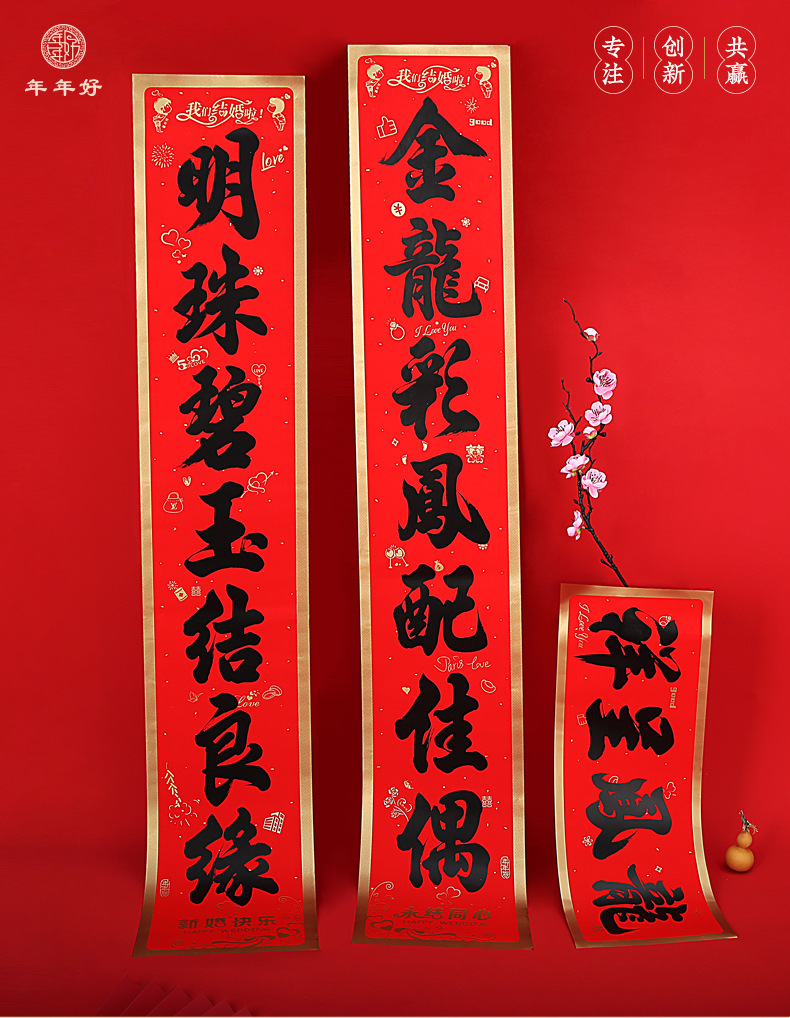 年年好
专注
创新
共赢
我们结婚啦!
金龍彩鳳配佳偶
good
I Love You
Paris Love
永结同心
HAPPY WEDDING
我们结婚啦!
明珠碧玉结良缘
Love
LOVE
Love
新婚快乐
HAPPY WEDDING
龍鳳呈祥
I Love You
good